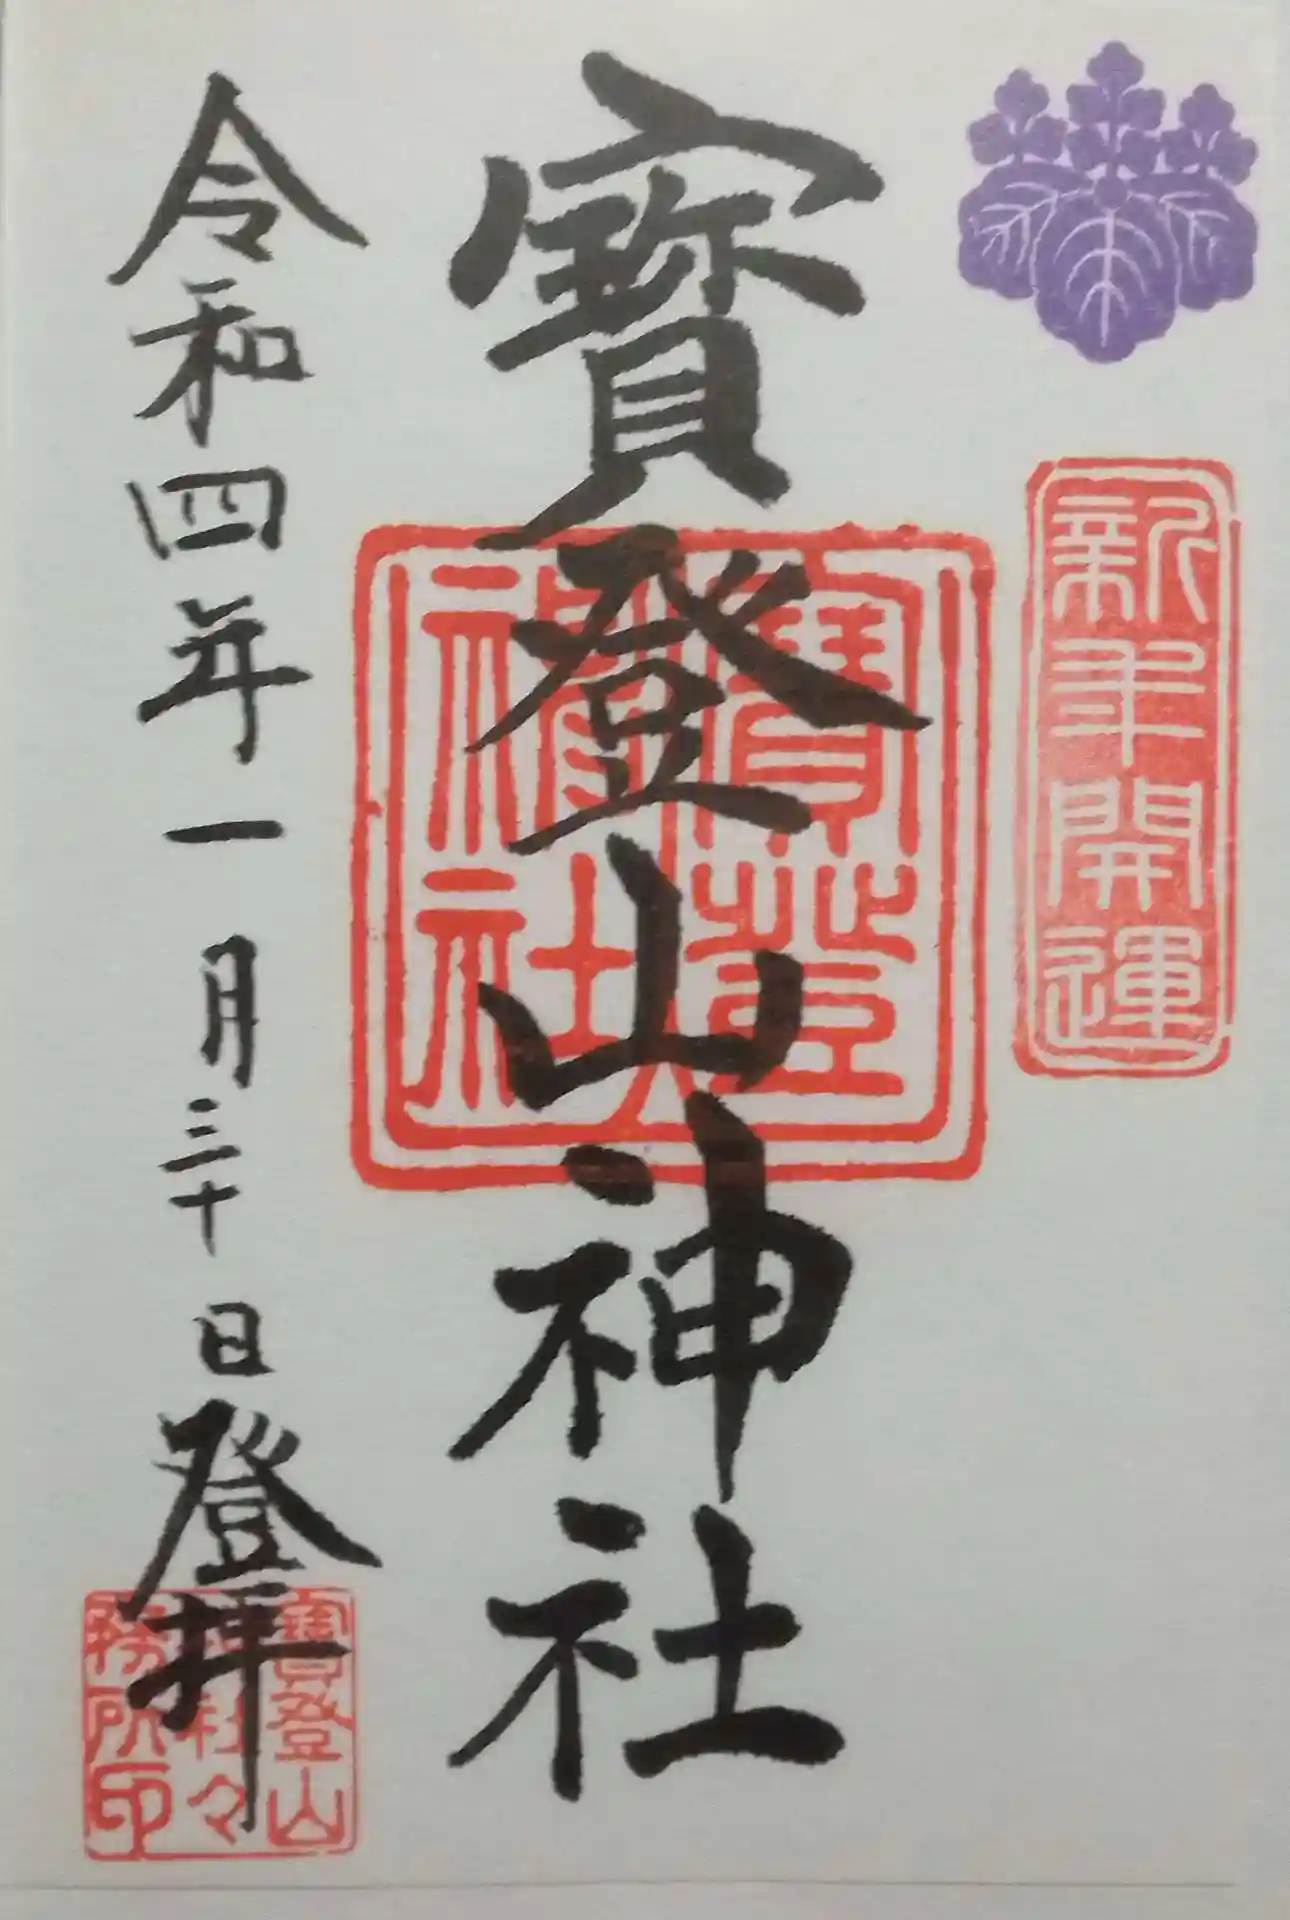 新年開運
寶登山神社
寶登
神社
令和四年一月三十日登拝
寶登山
神社々
務所印